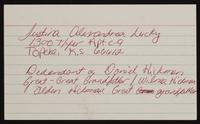 Justina Alexandrea Lucky
1300 Tyler Apt C-9
Topeka, K.S. 66612
Decendant of David Hickman
Great-Great Grandfather / Wilenia Hickman
/ Alden Hickman Great grandfather